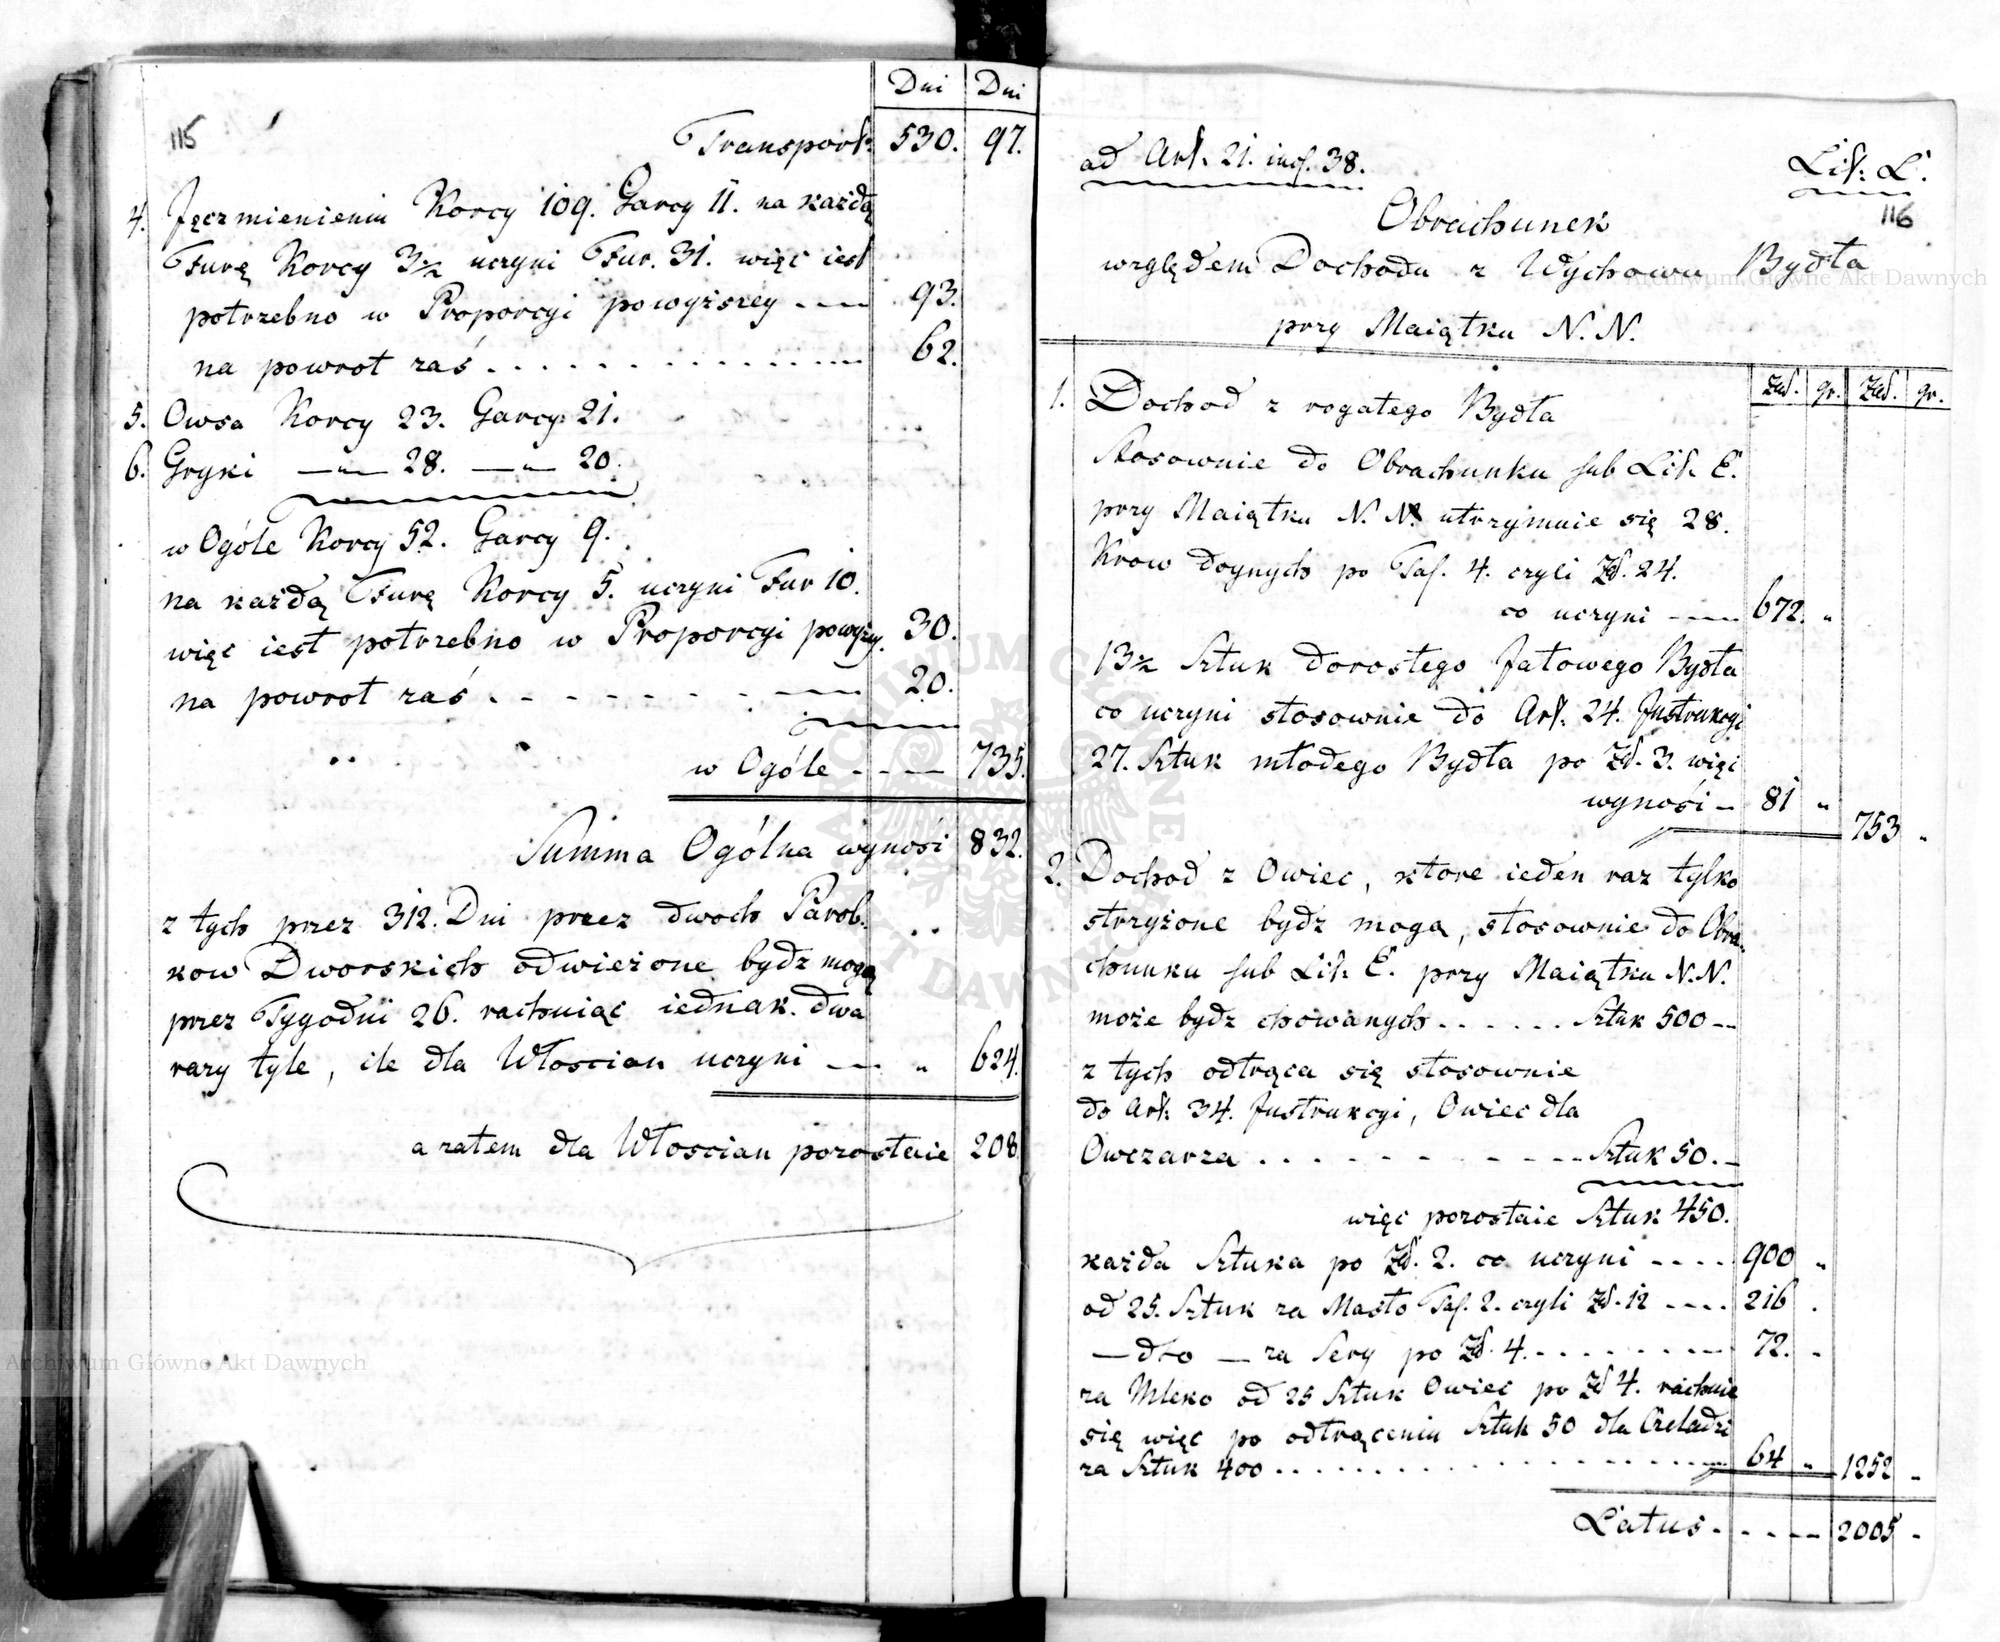 115
Dni Dni
Transport. 530. 97.
4. Jęczmienieniu Korcy 109. Garcy 11. na każdą
Furę Korcy 3½ uczyni Fur. 31. więc iest
potrzebno w Proporcyi powyższey --- 93.
na powrot zaś . . . . . . . . . . 62.
5. Owsa Korcy 23. Garcy 21.
6. Gryki —"— 28. —"— 20.
w Ogóle Korcy 52. Garcy 9.
na każdą Furę Korcy 5. uczyni Fur 10.
więc iest potrzebno w Proporcyi powyższy. 30.
na powrot zaś . - - - - - - - 20.
w Ogóle - - - - 735.
Summa Ogólna wynośi 832.
z tych przez 312. Dni przez dwoch Parob-
kow Dworskich odwieżone bydz mogą
przez Tygodni 26. rachuiąc iednak dwa
razy tyle, ile dla Włoscian uczyni — " 624.
a zatem dla Włoscian pozostaie 208.
ad Art. 21. incl. 38.
Lit. L.
116
Obrachunek
względem Dochodu z Wychowu Bydła
przy Maiątku N. N.
Zł. gr. Zł. gr.
1. Dochod z rogatego Bydła
Stosownie do Obrachunku sub Lit. E.
przy Maiątku N. N. utrzymuie się 28.
Krow doynych po Tal. 4. czyli Zł. 24.
co uczyni --- 672. "
13½ Sztuk dorosłego Jałowego Bydła
co uczyni stosownie do Art. 24. Instrukcyi
27. Sztuk młodego Bydła po Zł. 3. więc
wynośi - 81 " 753 "
2. Dochod z Owiec, ktore ieden raz tylko
strzyżone bydz mogą, stosownie do Obra-
chunku sub Lit. E. przy Maiątku N. N.
może bydz chowanych . . . . . . Sztuk 500 --
z tych odtrąca się stosownie
do Art. 34. Instrukcyi, Owiec dla
Owczarza . . . . - - - - - - Sztuk 50. -
więc pozostaie Sztuk 450.
każda Sztuka po Zł. 2. co uczyni - - - - 900 "
od 25. Sztuk za Masło Tal. 2. czyli Zł. 12 - - - . 216 .
— dto — za Sery po Zł. 4. - - - - - - - 72. -
za Mleko od 25 Sztuk Owiec po Zł 4. rachuie
się więc po odtrąceniu Sztuk 50 dla Czeladzi
za Sztuk 400 . . . . . . . . . . . . . . . . 64 " 1252 "
Latus . - - - - 2005 -
Archiwum Główne Akt Dawnych
Archiwum Główne Akt Dawnych
ARCHIWUM GŁÓWNE AKT DAWNYCH